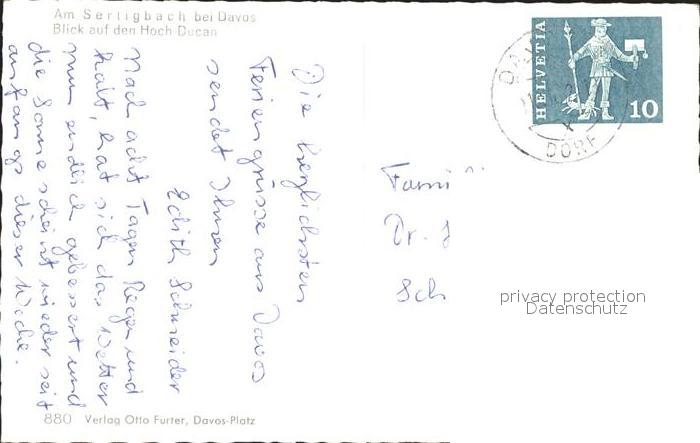 Am Sertigbach bei Davos
Blick auf den Hoch Ducan
Die herzlichsten
Feriengrüsse aus Davos
sendet Ihnen
Edith Schneider
Nach acht Tagen Regen und
kalt, hat sich das Wetter
nun endlich gebessert und
die Sonne scheint wieder seit
anfangs dieser Woche.
HELVETIA
10
DORF
Fami
Dr.
Sch
privacy protection
Datenschutz
880 Verlag Otto Furter, Davos-Platz